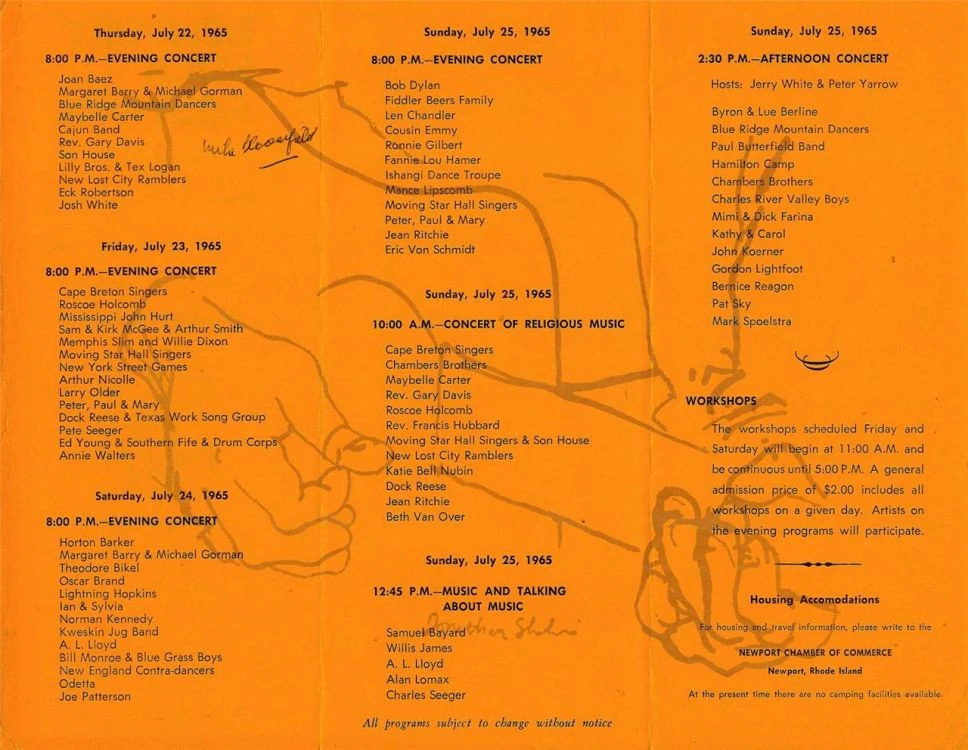 Thursday, July 22, 1965
8:00 P.M.—EVENING CONCERT
Joan Baez
Margaret Barry & Michael Gorman
Blue Ridge Mountain Dancers
Maybelle Carter
Cajun Band
Rev. Gary Davis
Son House
Lilly Bros. & Tex Logan
New Lost City Ramblers
Eck Robertson
Josh White
Mike Bloomfield
Friday, July 23, 1965
8:00 P.M.—EVENING CONCERT
Cape Breton Singers
Roscoe Holcomb
Mississippi John Hurt
Sam & Kirk McGee & Arthur Smith
Memphis Slim and Willie Dixon
Moving Star Hall Singers
New York Street Games
Arthur Nicolle
Larry Older
Peter, Paul & Mary
Dock Reese & Texas Work Song Group
Pete Seeger
Ed Young & Southern Fife & Drum Corps
Annie Walters
Saturday, July 24, 1965
8:00 P.M.—EVENING CONCERT
Horton Barker
Margaret Barry & Michael Gorman
Theodore Bikel
Oscar Brand
Lightning Hopkins
Ian & Sylvia
Norman Kennedy
Kweskin Jug Band
A. L. Lloyd
Bill Monroe & Blue Grass Boys
New England Contra-dancers
Odetta
Joe Patterson
Sunday, July 25, 1965
8:00 P.M.—EVENING CONCERT
Bob Dylan
Fiddler Beers Family
Len Chandler
Cousin Emmy
Ronnie Gilbert
Fannie Lou Hamer
Ishangi Dance Troupe
Mance Lipscomb
Moving Star Hall Singers
Peter, Paul & Mary
Jean Ritchie
Eric Von Schmidt
Sunday, July 25, 1965
10:00 A.M.—CONCERT OF RELIGIOUS MUSIC
Cape Breton Singers
Chambers Brothers
Maybelle Carter
Rev. Gary Davis
Roscoe Holcomb
Rev. Francis Hubbard
Moving Star Hall Singers & Son House
New Lost City Ramblers
Katie Bell Nubin
Dock Reese
Jean Ritchie
Beth Van Over
Sunday, July 25, 1965
12:45 P.M.—MUSIC AND TALKING
ABOUT MUSIC
Samuel Bayard
Willis James
A. L. Lloyd
Alan Lomax
Charles Seeger
All programs subject to change without notice
Sunday, July 25, 1965
2:30 P.M.—AFTERNOON CONCERT
Hosts: Jerry White & Peter Yarrow
Byron & Lue Berline
Blue Ridge Mountain Dancers
Paul Butterfield Band
Hamilton Camp
Chambers Brothers
Charles River Valley Boys
Mimi & Dick Farina
Kathy & Carol
John Koerner
Gordon Lightfoot
Bernice Reagon
Pat Sky
Mark Spoelstra
WORKSHOPS
The workshops scheduled Friday and
Saturday will begin at 11:00 A.M. and
be continuous until 5:00 P.M. A general
admission price of $2.00 includes all
workshops on a given day. Artists on
the evening programs will participate.
Housing Accomodations
For housing and travel information, please write to the
NEWPORT CHAMBER OF COMMERCE
Newport, Rhode Island
At the present time there are no camping facilities available.